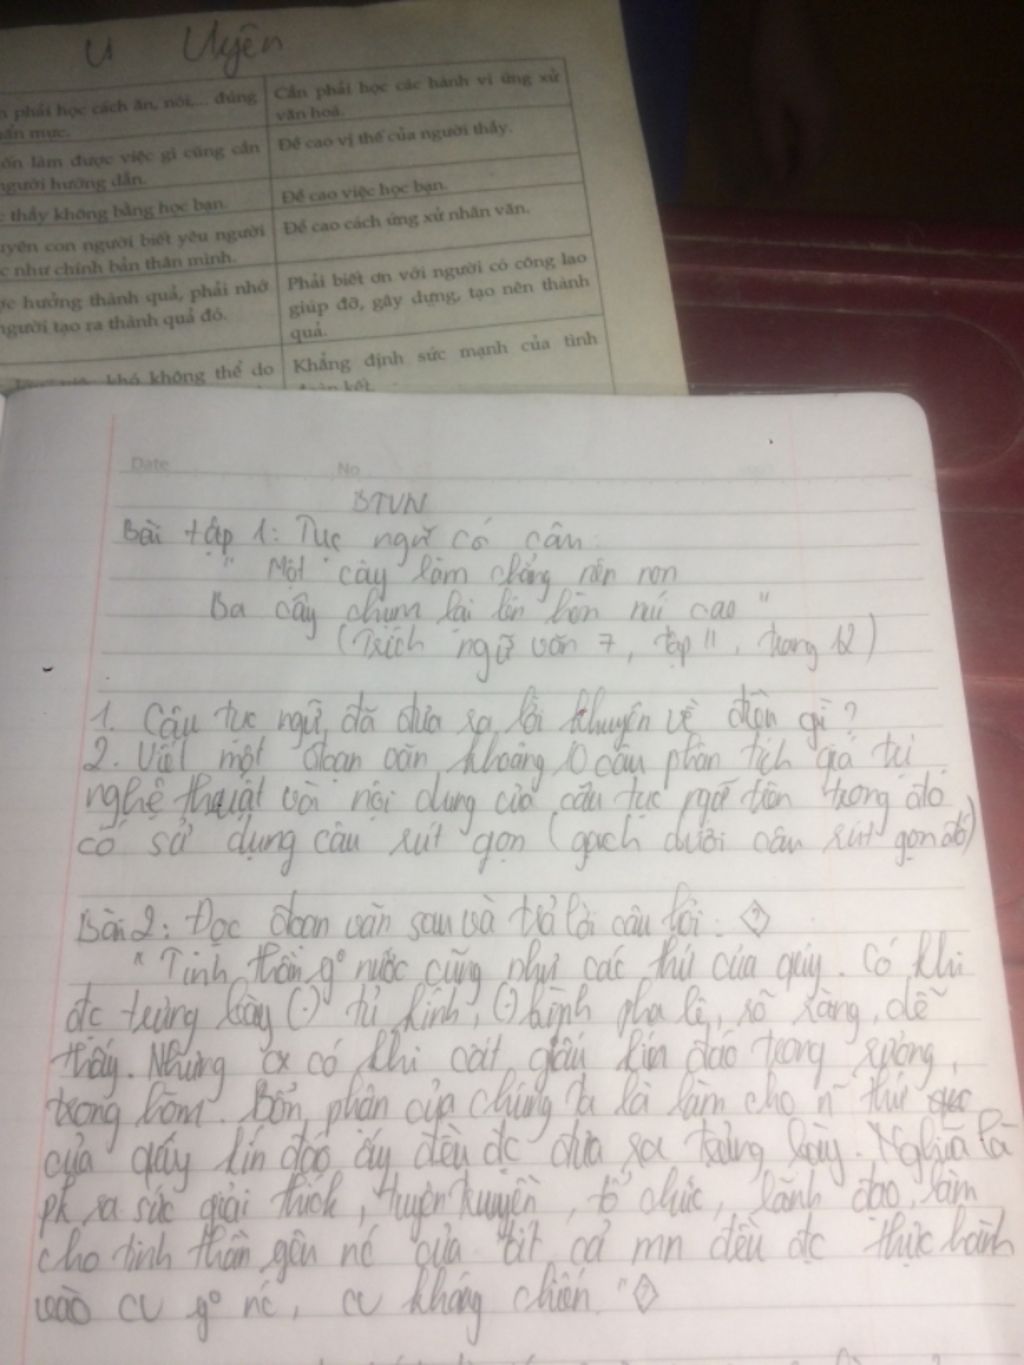 U Uyên
phải học cách ăn, nói,... đúng
mực.
Cần phải học các hành vi ứng xử
văn hoá.
làm được việc gì cũng cần
người hướng dẫn.
Đề cao vị thế của người thầy.
thầy không bằng học bạn.
Đề cao việc học bạn.
con người biết yêu người
như chính bản thân mình.
Đề cao cách ứng xử nhân văn.
hưởng thành quả, phải nhớ
người tạo ra thành quả đó.
Phải biết ơn với người có công lao
giúp đỡ, gây dựng, tạo nên thành
quả.
khó không thể do
Khẳng định sức mạnh của tình
đoàn kết.
Date No
BTVN
Bài tập 1: Tục ngữ có câu:
" Một cây làm chẳng nên non
Ba cây chụm lại lên hòn núi cao "
(Trích ngữ văn 7, tập II, trang 12)
1. Câu tục ngữ đã đưa ra lời khuyên về điều gì?
2. Viết một đoạn văn khoảng 10 câu phân tích giá trị
nghệ thuật và nội dung của câu tục ngữ trên trong đó
có sử dụng câu rút gọn (gạch dưới câu rút gọn đó)
Bài 2: Đọc đoạn văn sau và trả lời câu hỏi:
" Tinh thần y° nước cũng như các thứ của quý. Có khi
đc trưng bày (.) tủ kính, (.) bình pha lê, rõ ràng, dễ
thấy. Nhưng cx có khi cất giấu kín đáo trong rương,
trong hòm. Bổn phận của chúng ta là làm cho n~ thứ
của quý kín đáo ấy đều đc đưa ra trưng bày. Nghĩa là
pk ra sức giải thích, tuyên truyền, tổ chức, lãnh đạo, làm
cho tinh thần yêu nc của tất cả mn đều đc thực hành
vào cv y° nc, cv kháng chiến. "